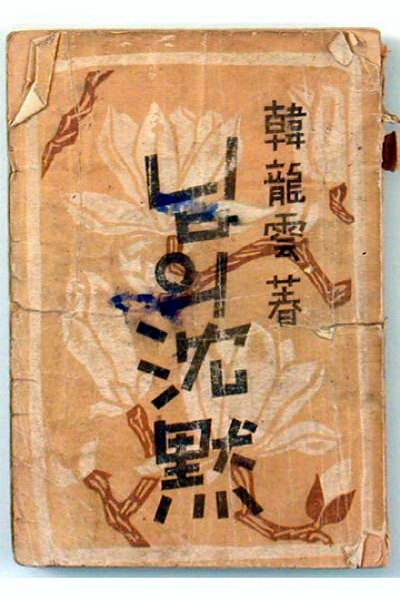 韓龍雲 著
님의沈默